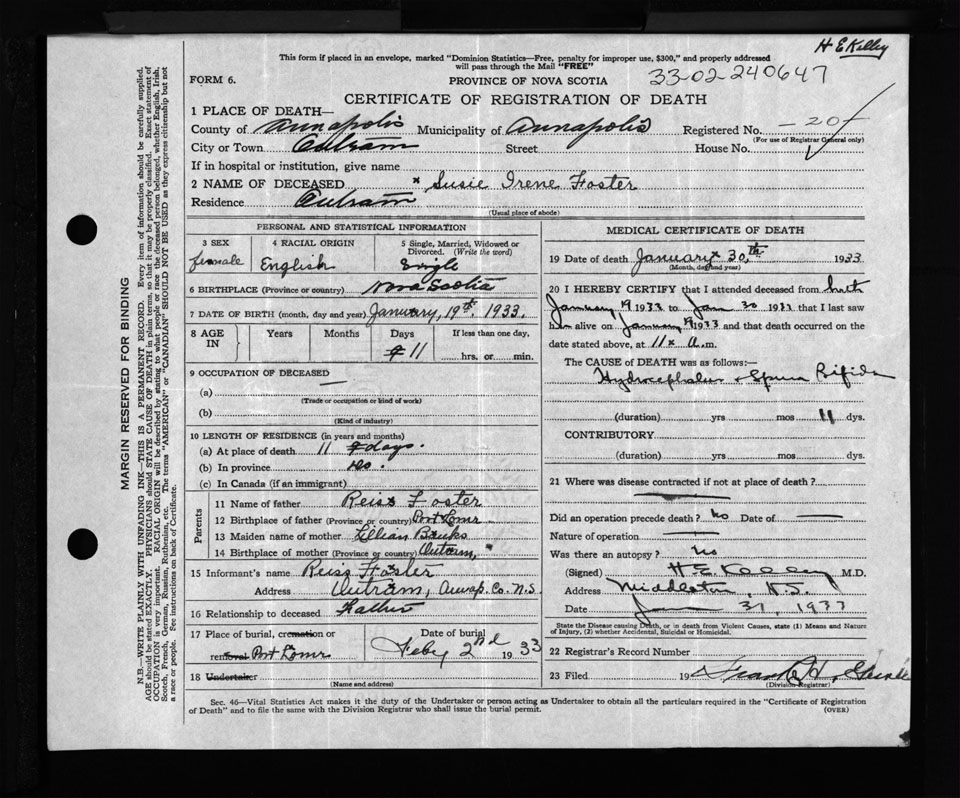 H E Kelley
This form if placed in an envelope, marked "Dominion Statistics—Free, penalty for improper use, $300," and properly addressed
will pass through the Mail "FREE"
FORM 6.
PROVINCE OF NOVA SCOTIA
33-02-240647
CERTIFICATE OF REGISTRATION OF DEATH
1 PLACE OF DEATH—
County of Annapolis Municipality of Annapolis Registered No. -20-
(For use of Registrar General only)
City or Town Outram Street House No.
If in hospital or institution, give name
2 NAME OF DECEASED x Susie Irene Foster
Residence Outram
(Usual place of abode)
MARGIN RESERVED FOR BINDING
N.B.—WRITE PLAINLY WITH UNFADING INK—THIS IS A PERMANENT RECORD. Every item of information should be carefully supplied.
AGE should be stated EXACTLY. PHYSICIANS should STATE CAUSE OF DEATH in plain terms, so that it may be properly classified. Exact statement of
OCCUPATION is very important. RACIAL ORIGIN will be described by stating to what people or race the deceased person belonged, whether English, Irish,
Scotch, French, German, Russian, Ruthenian, etc. The terms "AMERICAN" or "CANADIAN" SHOULD NOT BE USED as they express citizenship but not
a race or people. See instructions on back of Certificate.
PERSONAL AND STATISTICAL INFORMATION
3 SEX
female
4 RACIAL ORIGIN
English
5 Single, Married, Widowed or
Divorced. (Write the word)
Single
6 BIRTHPLACE (Province or country) Nova Scotia
7 DATE OF BIRTH (month, day and year) January, 19th. 1933.
8 AGE IN
Years Months Days If less than one day,
11 hrs. or min.
9 OCCUPATION OF DECEASED —
(a)
(Trade or occupation or kind of work)
(b)
(Kind of industry)
10 LENGTH OF RESIDENCE (in years and months)
(a) At place of death 11 days.
(b) In province do.
(c) In Canada (if an immigrant)
Parents
11 Name of father Foster
12 Birthplace of father (Province or country) Port Lorne
13 Maiden name of mother Lillian
14 Birthplace of mother (Province or country) Outram, "
15 Informant's name Foster
Address Outram, Annap. Co. N.S.
16 Relationship to deceased Father
17 Place of burial, cremation or
removal Port Lorne
Date of burial
Feby 2nd 1933
18 Undertaker
(Name and address)
MEDICAL CERTIFICATE OF DEATH
19 Date of death January 30,th 1933
(Month, day and year)
20 I HEREBY CERTIFY that I attended deceased from birth
January 19 1933 to Jan 30 1933 that I last saw
h alive on January 19 1933 and that death occurred on the
date stated above, at 11 x a.m.
The CAUSE OF DEATH was as follows:—
Hydrocephalus + Spina Bifida
(duration) yrs mos 11 dys.
CONTRIBUTORY
(duration) yrs mos dys.
21 Where was disease contracted if not at place of death?
Did an operation precede death? No Date of —
Nature of operation —
Was there an autopsy? no
(Signed) H. E. Kelley M.D.
Address Middleton, N.S.
Date Jan 31, 1933
State the Disease causing Death, or in death from Violent Causes, state (1) Means and Nature
of Injury, (2) whether Accidental, Suicidal or Homicidal.
22 Registrar's Record Number
23 Filed 19 Frank H.
(Division Registrar)
Sec. 46—Vital Statistics Act makes it the duty of the Undertaker or person acting as Undertaker to obtain all the particulars required in the "Certificate of Registration
of Death" and to file the same with the Division Registrar who shall issue the burial permit.
(OVER)